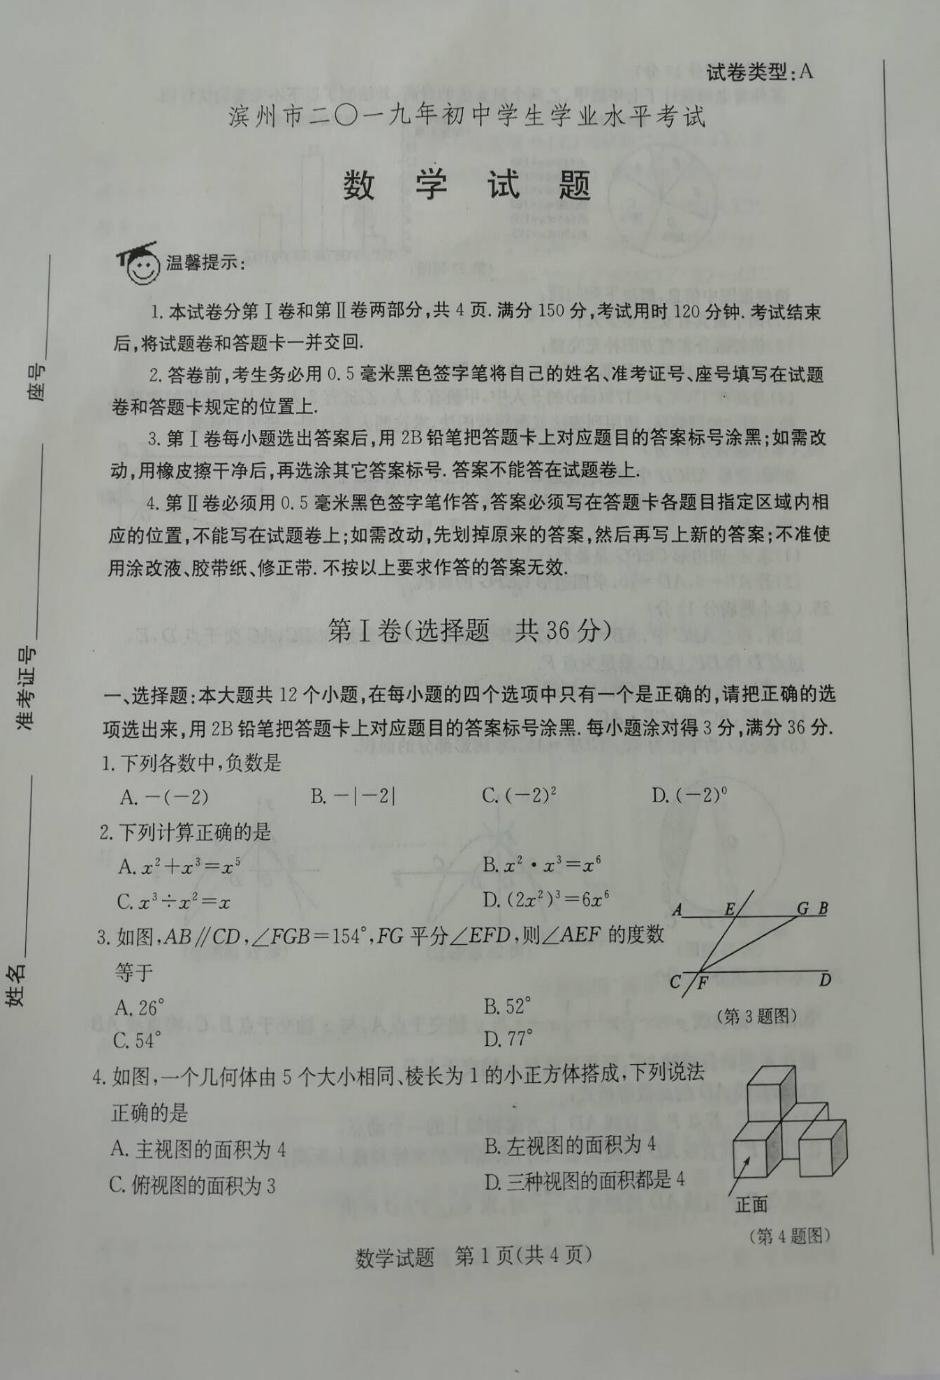 试卷类型:A
滨州市二〇一九年初中学生学业水平考试
数 学 试 题
温馨提示:
1. 本试卷分第Ⅰ卷和第Ⅱ卷两部分,共 4 页. 满分 150 分,考试用时 120 分钟. 考试结束
后,将试题卷和答题卡一并交回.
2. 答卷前,考生务必用 0.5 毫米黑色签字笔将自己的姓名、准考证号、座号填写在试题
卷和答题卡规定的位置上.
3. 第Ⅰ卷每小题选出答案后,用 2B 铅笔把答题卡上对应题目的答案标号涂黑;如需改
动,用橡皮擦干净后,再选涂其它答案标号. 答案不能答在试题卷上.
4. 第Ⅱ卷必须用 0.5 毫米黑色签字笔作答,答案必须写在答题卡各题目指定区域内相
应的位置,不能写在试题卷上;如需改动,先划掉原来的答案,然后再写上新的答案;不准使
用涂改液、胶带纸、修正带. 不按以上要求作答的答案无效.
座号
准考证号
姓名
第Ⅰ卷(选择题 共 36 分)
一、选择题:本大题共 12 个小题,在每小题的四个选项中只有一个是正确的,请把正确的选
项选出来,用 2B 铅笔把答题卡上对应题目的答案标号涂黑. 每小题涂对得 3 分,满分 36 分.
1. 下列各数中,负数是
A. -(-2) B. -|-2| C. (-2)² D. (-2)⁰
2. 下列计算正确的是
A. x²+x³=x⁵ B. x²·x³=x⁶
C. x³÷x²=x D. (2x²)³=6x⁶
3. 如图,AB∥CD,∠FGB=154°,FG 平分∠EFD,则∠AEF 的度数
等于
A. 26° B. 52°
C. 54° D. 77°
A E G B
C F D
(第 3 题图)
4. 如图,一个几何体由 5 个大小相同、棱长为 1 的小正方体搭成,下列说法
正确的是
A. 主视图的面积为 4 B. 左视图的面积为 4
C. 俯视图的面积为 3 D. 三种视图的面积都是 4
正面
(第 4 题图)
数学试题 第 1 页(共 4 页)